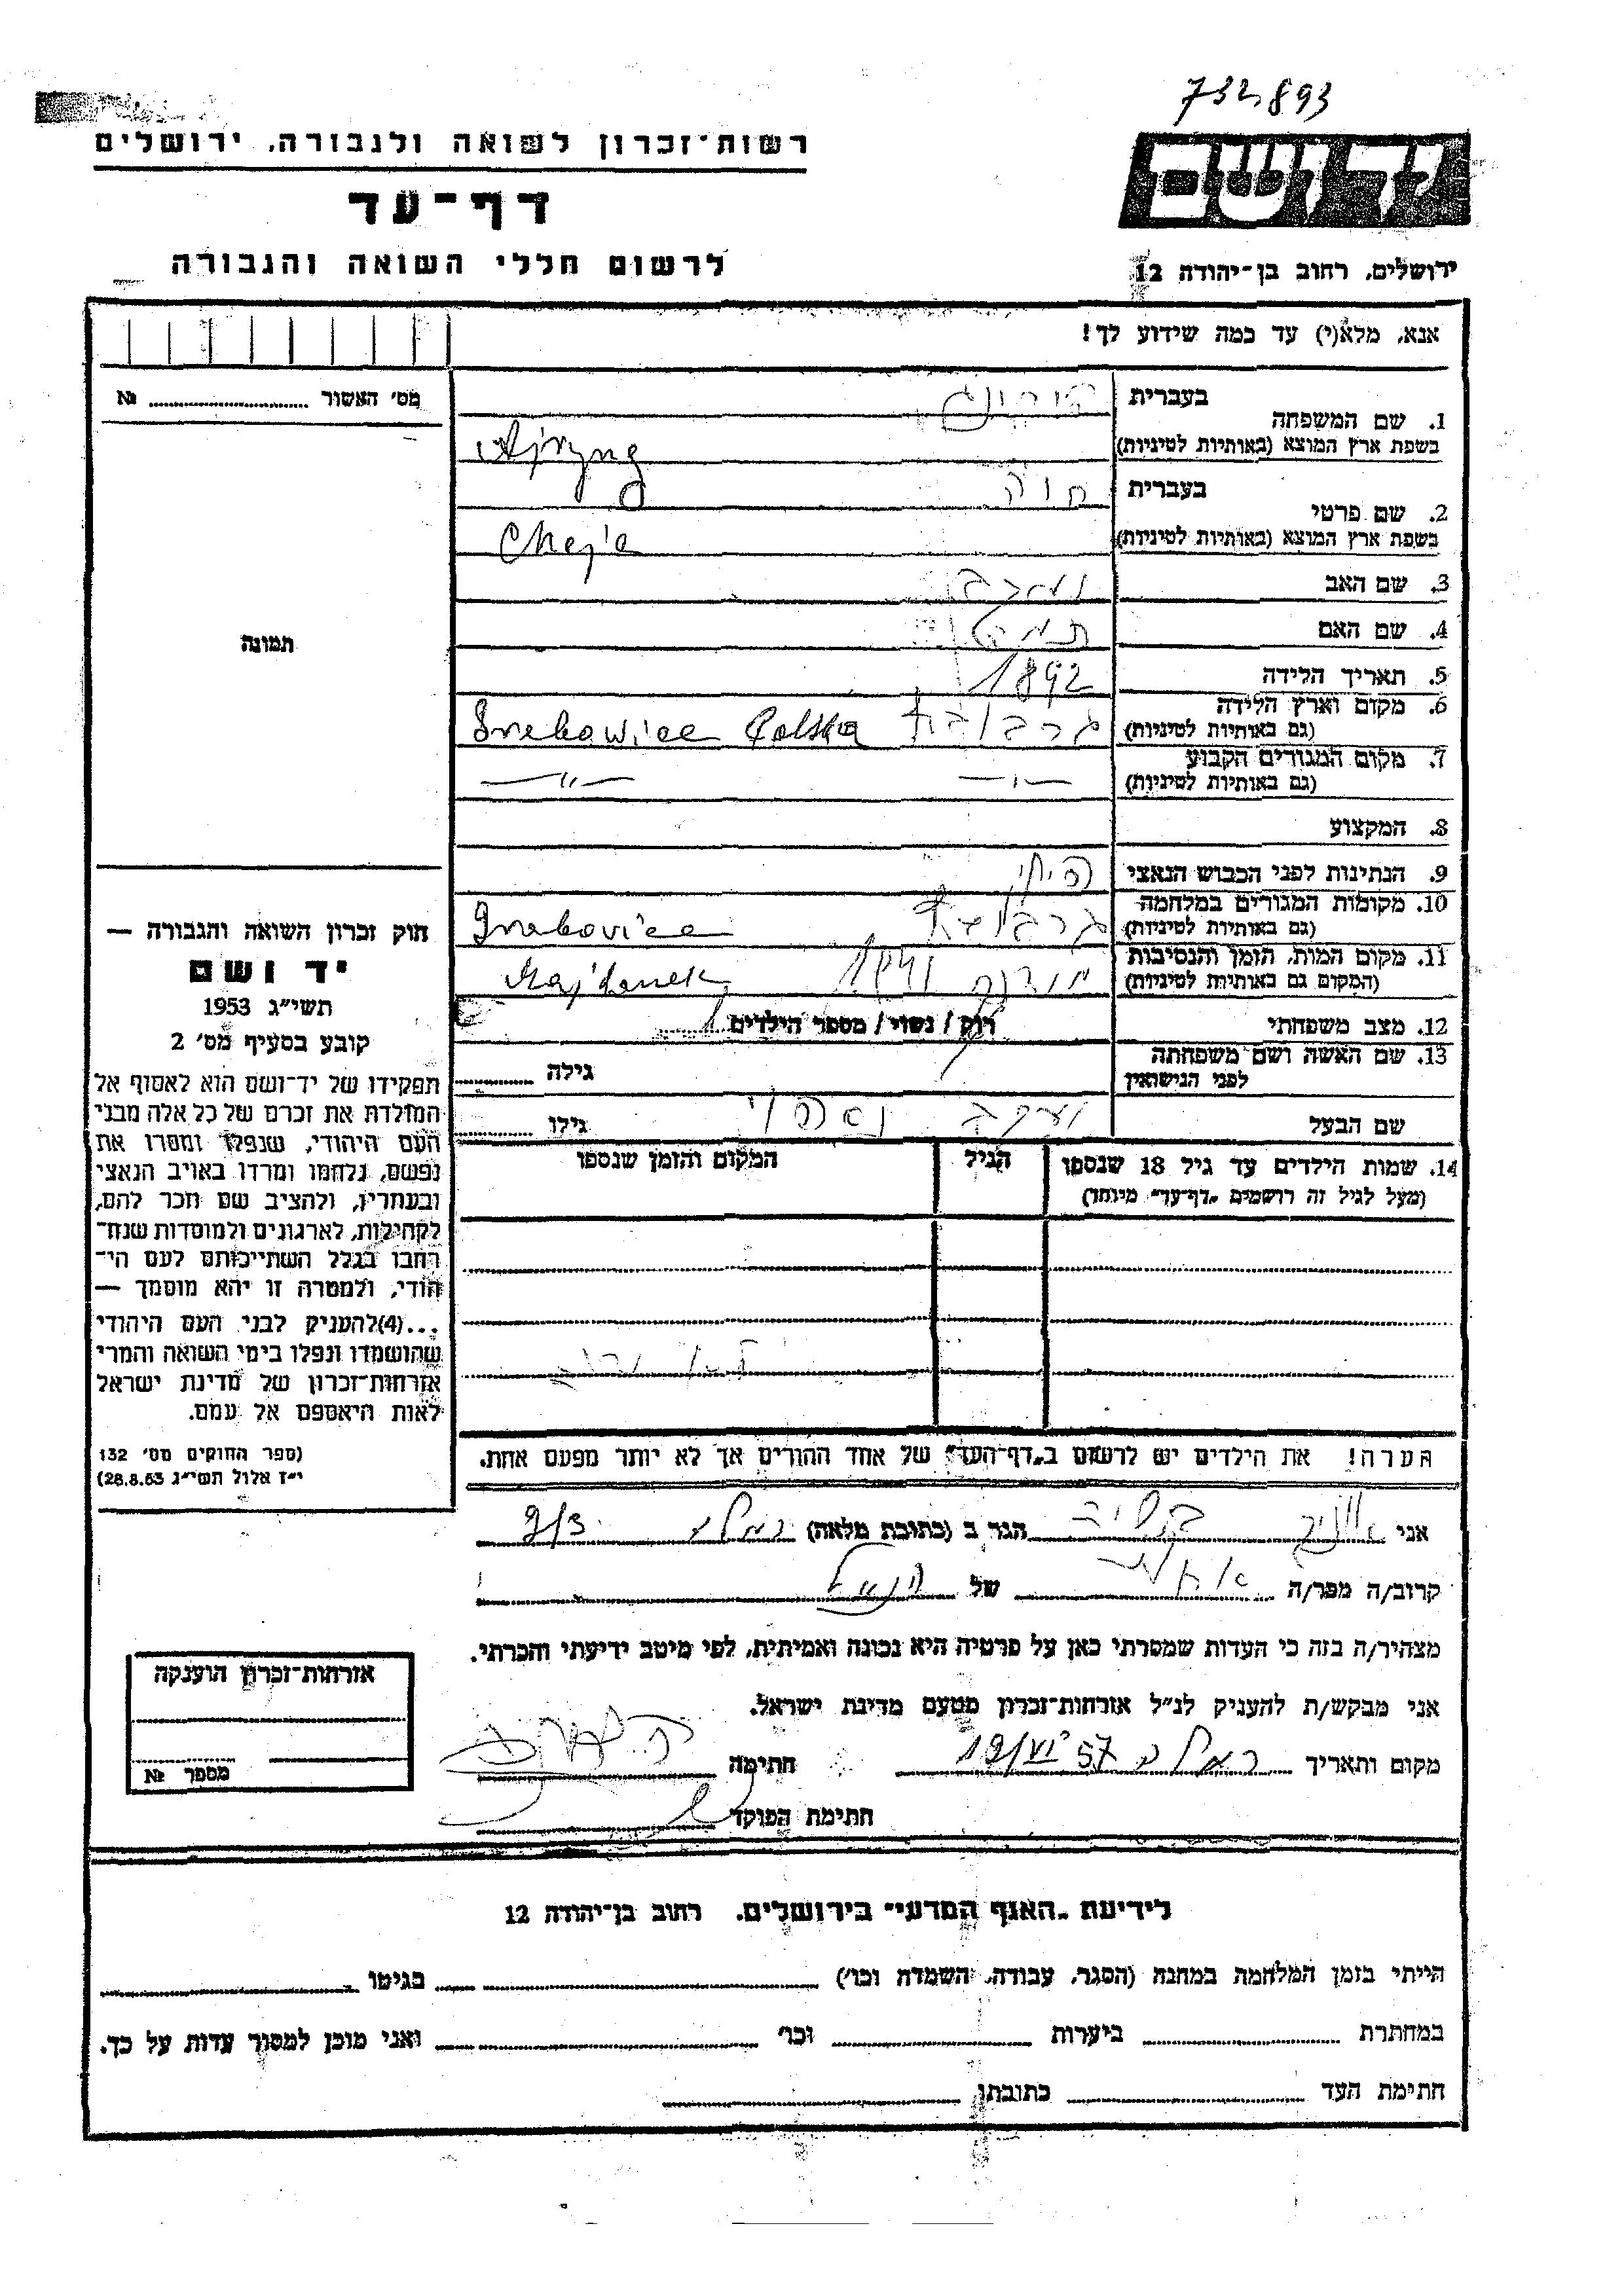 732,893
רשות־זכרון לשואה ולגבורה, ירושלים
יד ושם
דף־עד
לרשום חללי השואה והגבורה
ירושלים, רחוב בן־יהודה 12
אנא, מלא(י) עד כמה שידוע לך!
מס׳ האשור № 
בעברית
1. שם המשפחה
בשפת ארץ המוצא (באותיות לטיניות)
בעברית חוה
2. שם פרטי
בשפת ארץ המוצא (באותיות לטיניות) Chaja
3. שם האב יעקב
4. שם האם
תמונה
5. תאריך הלידה 1892
6. מקום וארץ הלידה
(גם באותיות לטיניות) Polska
7. מקום המגורים הקבוע
(גם באותיות לטיניות) —〃— —〃—
8. המקצוע
9. הנתינות לפני הכבוש הנאצי
10. מקומות המגורים במלחמה
(גם באותיות לטיניות)
11. מקום המות, הזמן והנסיבות
(המקום גם באותיות לטיניות) Majdanek
12. מצב משפחתי רווק / נשוי / מספר הילדים
13. שם האשה ושם משפחתה
לפני הנישואין גילה
שם הבעל יעקב גילו
14. שמות הילדים עד גיל 18 שנספו הגיל המקום והזמן שנספו
(מעל לגיל זה רושמים „דף־עד״ מיוחד)
חוק זכרון השואה והגבורה —
יד ושם
תשי״ג 1953
קובע בסעיף מס׳ 2
תפקידו של יד־ושם הוא לאסוף אל
המולדת את זכרם של כל אלה מבני
העם היהודי, שנפלו ומסרו את
נפשם, נלחמו ומרדו באויב הנאצי
ובעוזריו, ולהציב שם וזכר להם,
לקהילות, לארגונים ולמוסדות שנח־
רבו בגלל השתייכותם לעם הי־
הודי, ולמטרה זו יהא מוסמך —
...(4)להעניק לבני העם היהודי
שהושמדו ונפלו בימי השואה והמרי
אזרחות־זכרון של מדינת ישראל
לאות היאספם אל עמם.
(ספר החוקים מס׳ 132
י״ז אלול תשי״ג 28.8.53)
הערה! את הילדים יש לרשום ב„דף־העד״ של אחד ההורים אך לא יותר מפעם אחת.
אני הגר ב (כתובת מלאה) רמלה
קרוב/ה מפר/ה של
מצהיר/ה בזה כי העדות שמסרתי כאן על פרטיה היא נכונה ואמיתית, לפי מיטב ידיעתי והכרתי.
אני מבקש/ת להעניק לנ״ל אזרחות־זכרון מטעם מדינת ישראל.
מקום ותאריך רמלה 19/VI 57 חתימה
חתימת הפוקד
אזרחות־זכרון הוענקה
מספר №
לידיעת „האגף המדעי״ בירושלים, רחוב בן־יהודה 12
הייתי בזמן המלחמה במחנה (הסגר, עבודה, השמדה וכו׳) בגיטו
במחתרת ביערות וכו׳ ואני מוכן למסור עדות על כך.
חתימת העד כתובתו